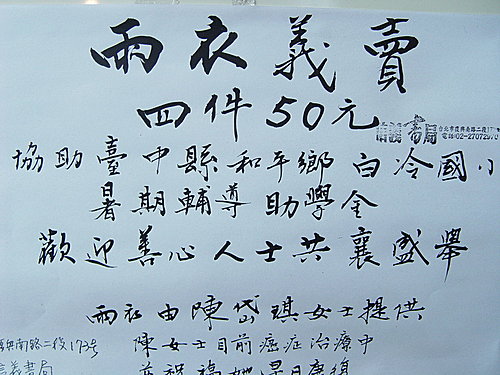 雨衣義賣
四件50元
信義書局 台北市復興南路二段173號
電話:02-27072970
協助臺中縣和平鄉白冷國小
暑期輔導助學金
歡迎善心人士共襄盛舉
雨衣由陳岱琪女士提供
陳女士目前癌症治療中
並祝福她早日康復
復興南路二段173號
信義書局